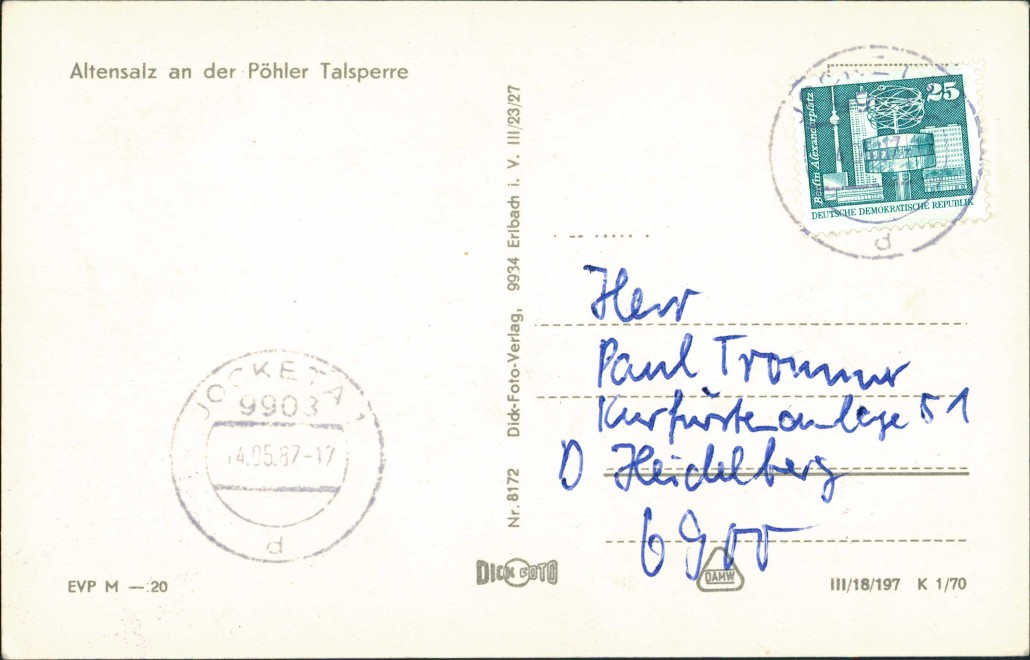 Altensalz an der Pöhler Talsperre
Nr. 8172 Dick-Foto-Verlag, 9934 Erlbach i. V. III/23/27
25
Berlin Alexanderplatz
DEUTSCHE DEMOKRATISCHE REPUBLIK
d
Herr
Paul Trommer
Kurfürstenanlage 51
D Heidelberg
6900
JOCKETA 1
9903
14.05.87-17
d
EVP M — .20
DICK FOTO
DAMW
III/18/197 K 1/70